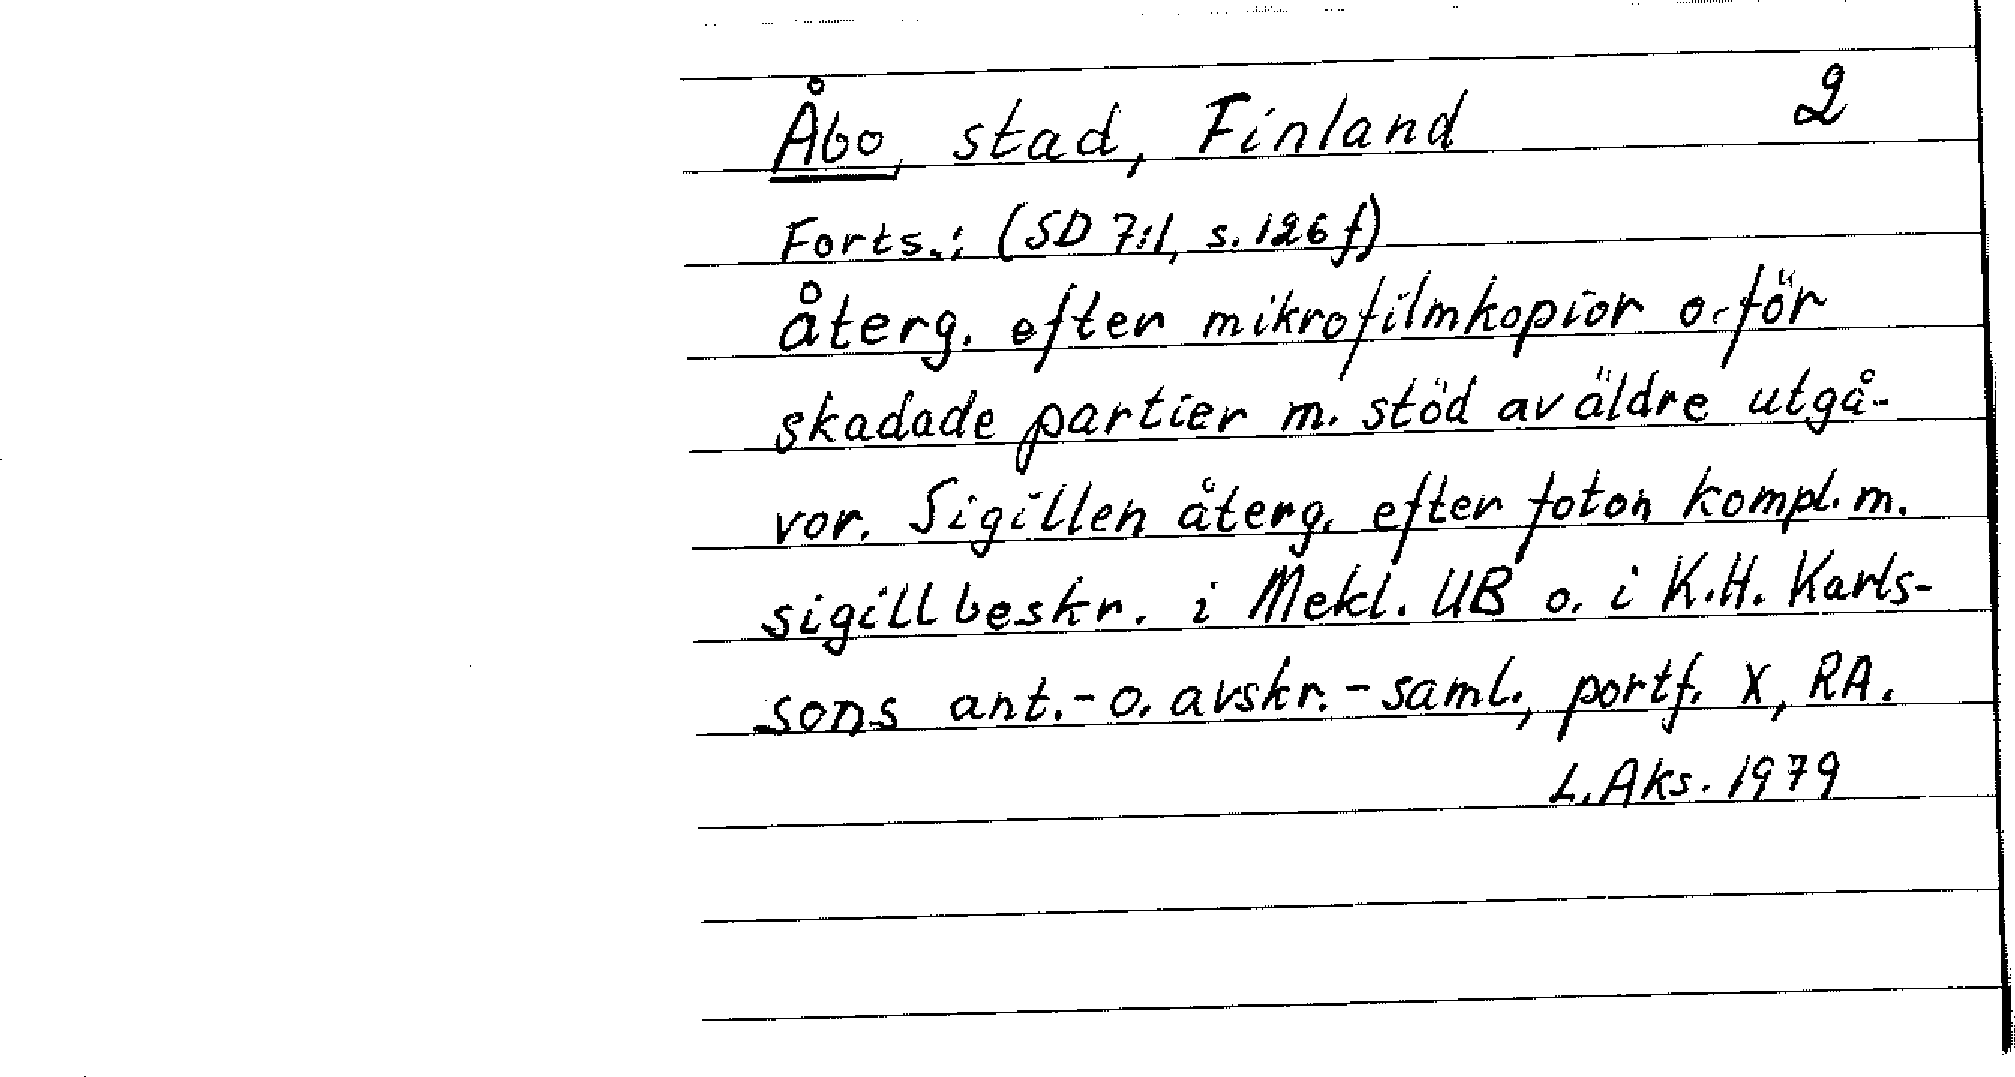 Åbo, stad, Finland 2
Forts.: (SD 7:1, s. 126 f)
återg. efter mikrofilmkopior o. för
skadade partier m. stöd av äldre utgå-
vor. Sigillen återg. efter foton kompl. m.
sigillbeskr. i Mekl. UB o. i K.H. Karls-
sons ant.- o. avskr.-saml., portf. X, RA.
L. Aks. 1979